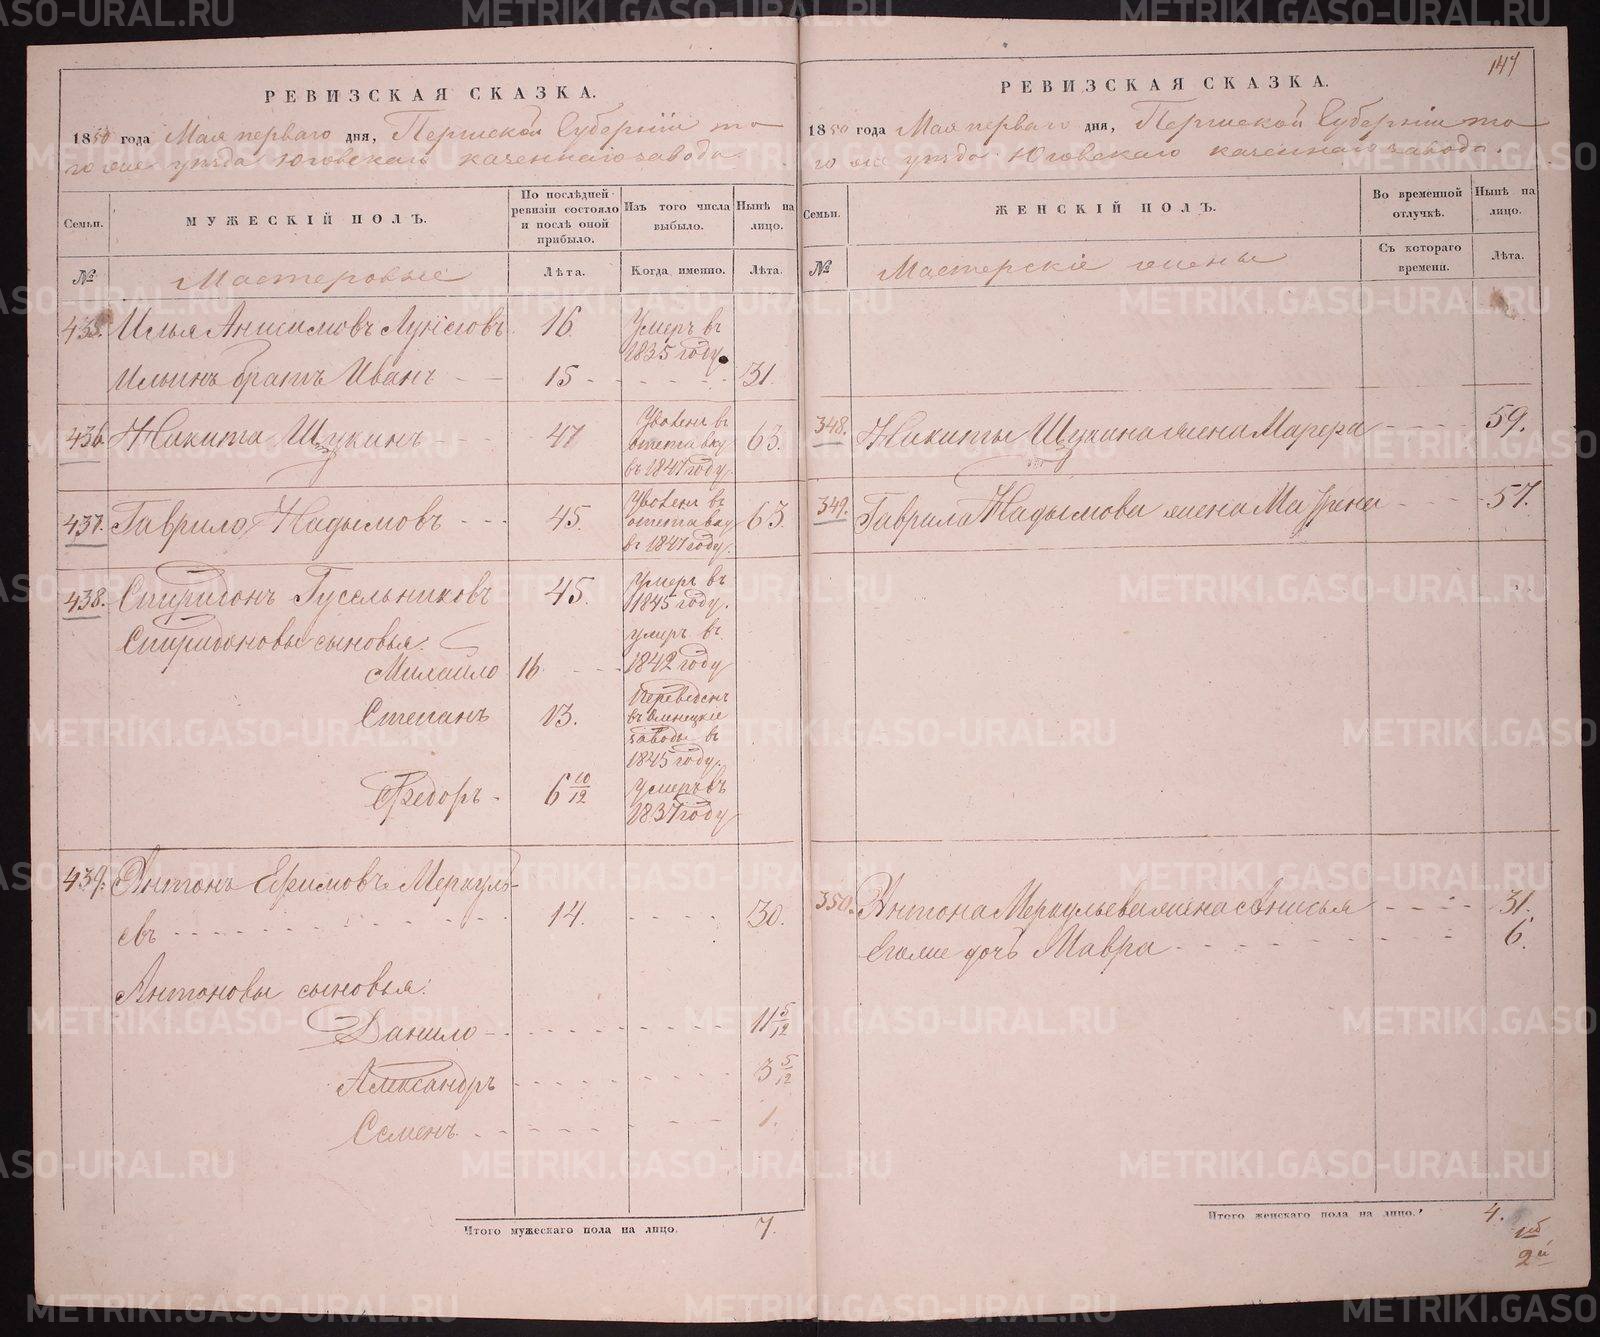 147
РЕВИЗСКАЯ СКАЗКА.
1850 года Мая перваго дня, Пермской Губернiи то
го же уезда Юговскаго казеннаго завода
Семьи.
МУЖЕСКІЙ ПОЛЪ.
По послѣдней ревизіи состояло и послѣ оной прибыло.
Изъ того числа выбыло.
Нынѣ на лицо.
№
Мастеровые
Лѣта.
Когда именно.
Лѣта.
435. Илья Анисимовъ 16 Умеръ въ
1835 году
Ильинъ братъ Иванъ 15 31.
436 Никита Щукинъ 47 Уволенъ въ
отставку 63.
въ 1847 году.
437. Гаврило Надымовъ 45. Уволенъ въ
отставку 63.
въ 1847 году.
438. Спиридонъ Гусельниковъ 45. Умеръ въ
1845 году.
Спиридоновы сыновья:
Михайло 16 умеръ въ
1842 году
Степанъ 13. Переведенъ
въ Олонецкіе
заводы въ
1845 году.
Ѳедоръ 6 10/12 умеръ въ
1837 году
439. Антонъ Ефимовъ Меркуль-
евъ 14. 30.
Антоновы сыновья:
Данило 11 5/12
Александръ 3 5/12
Семенъ 1.
Итого мужескаго пола на лицо. 7
РЕВИЗСКАЯ СКАЗКА.
1850 года Мая перваго дня, Пермской Губерніи то
го же уезда Юговскаго казеннаго завода.
Семьи.
ЖЕНСКІЙ ПОЛЪ.
Во временной отлучкѣ.
Нынѣ на лицо.
№
Мастерскіе жены
Съ котораго времени.
Лѣта.
348. Никиты Щукина жена 59.
349. Гаврила Надымова жена Матрена 57.
350. Антона Меркульева жена Анисья 31.
Его же дочь Мавра 6.
Итого женскаго пола на лицо. 4.
METRIKI.GASO-URAL.RU